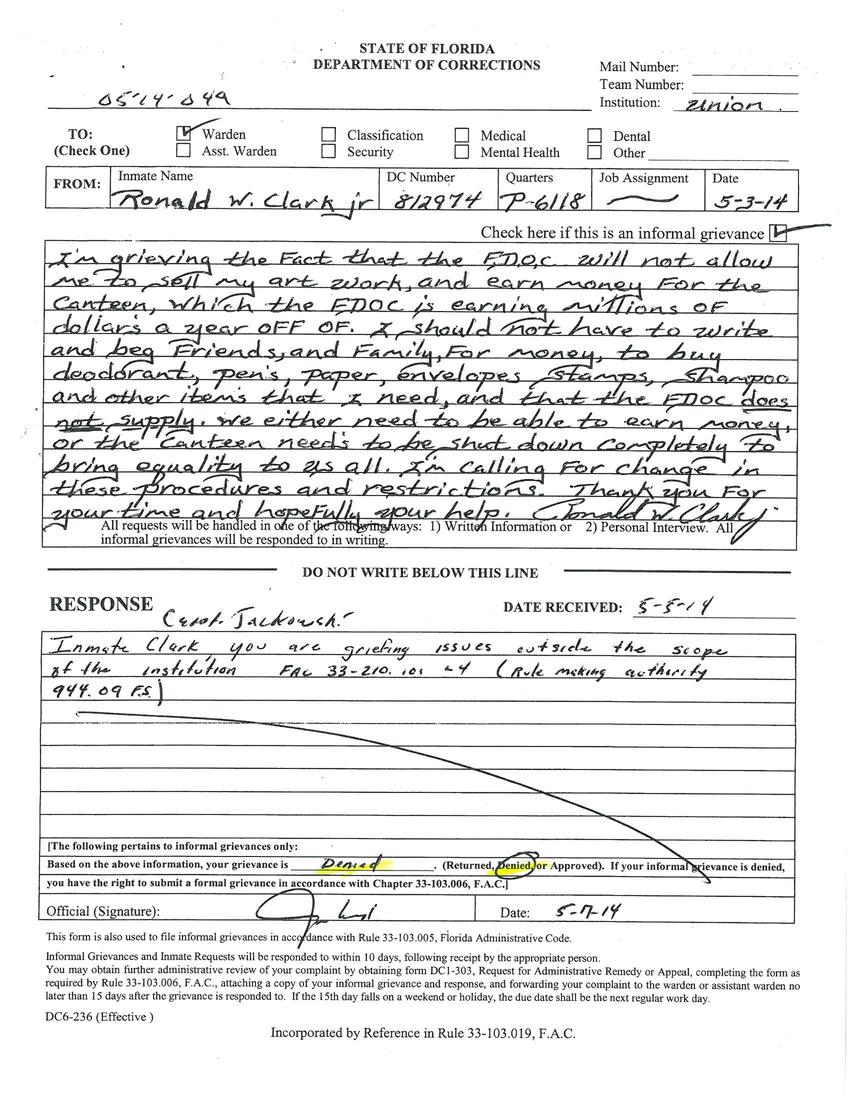 STATE OF FLORIDA
DEPARTMENT OF CORRECTIONS
Mail Number:
Team Number:
Institution: Union
05-14-049
TO: Warden Classification Medical Dental
(Check One) Asst. Warden Security Mental Health Other
FROM: Inmate Name DC Number Quarters Job Assignment Date
Ronald W. Clark jr 812974 P-6118 5-3-14
Check here if this is an informal grievance
I'm grieving the Fact that the F.D.O.C will not allow
me to sell my art work, and earn money For the
Canteen, which the FDOC is earning millions OF
dollar's a year OFF OF. I should not have to write
and beg Friends, and Family, For money, to buy
deodorant, pen's, paper, envelopes stamps, shampoo
and other item's that I need, and that the FDOC does
not supply. We either need to be able to earn money,
or the Canteen need's to be shut down completely to
bring equality to us all. I'm calling For change in
these procedures and restrictions. Thank you For
your time and hopefully your help. Ronald W. Clark jr
All requests will be handled in one of the following ways: 1) Written Information or 2) Personal Interview. All
informal grievances will be responded to in writing.
DO NOT WRITE BELOW THIS LINE
RESPONSE DATE RECEIVED: 5-5-14
Inmate Clark, you are griefing issues outside the scope
of the institution FAC 33-210.101 (Rule making authority
944.09 F.S)
[The following pertains to informal grievances only:
Based on the above information, your grievance is Denied . (Returned, Denied, or Approved). If your informal grievance is denied,
you have the right to submit a formal grievance in accordance with Chapter 33-103.006, F.A.C.]
Official (Signature): Date: 5-7-14
This form is also used to file informal grievances in accordance with Rule 33-103.005, Florida Administrative Code.
Informal Grievances and Inmate Requests will be responded to within 10 days, following receipt by the appropriate person.
You may obtain further administrative review of your complaint by obtaining form DC1-303, Request for Administrative Remedy or Appeal, completing the form as
required by Rule 33-103.006, F.A.C., attaching a copy of your informal grievance and response, and forwarding your complaint to the warden or assistant warden no
later than 15 days after the grievance is responded to. If the 15th day falls on a weekend or holiday, the due date shall be the next regular work day.
DC6-236 (Effective )
Incorporated by Reference in Rule 33-103.019, F.A.C.